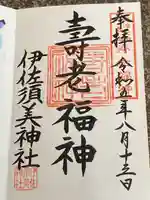 奉拝
令和五年八月十三日
壽老福神
伊佐須美神社